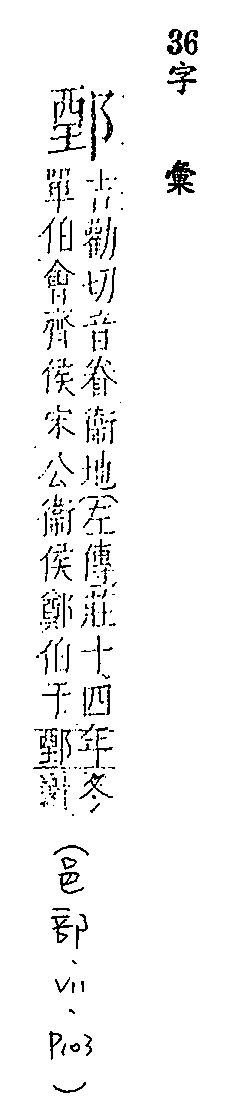 36字彙
鄄
吉勸切音眷衞地(左傳莊十四年冬
單伯會齊侯宋公衞侯鄭伯于鄄
(邑部、VII、P103)